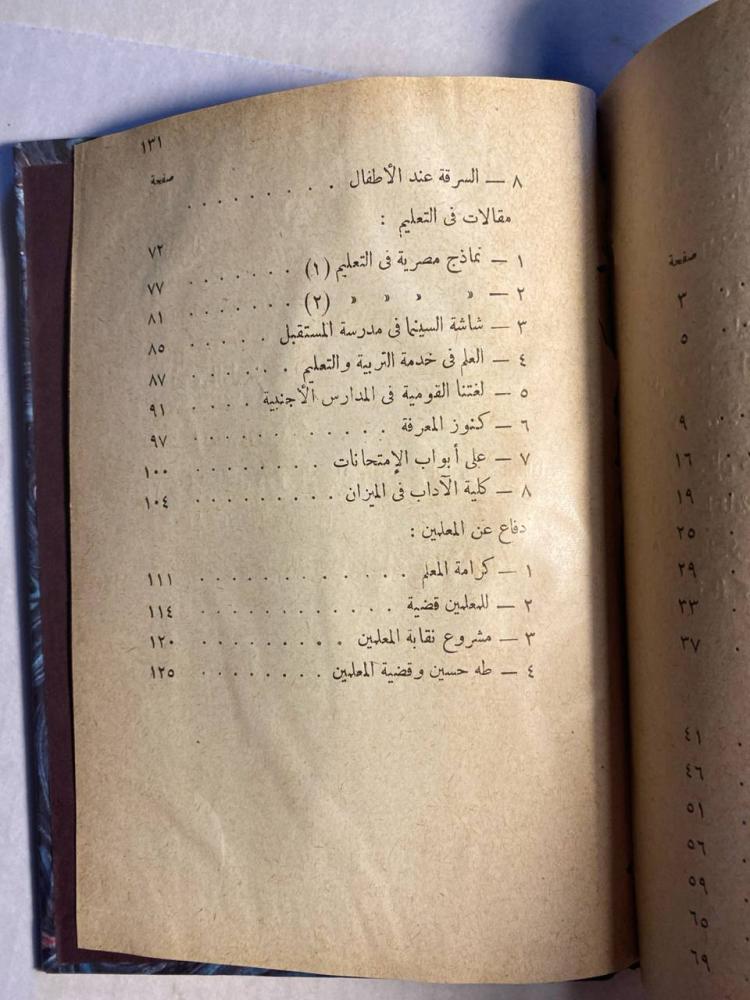 صفحة
٣
٥
٩
١٦
١٩
٢٥
٢٩
٣٣
٣٧
٤١
٤٦
٥١
٥٦
٥٩
٦٥
٦٩
١٣١
صفحة
٨ — السرقة عند الأطفال . . . . . . . . .
مقالات فى التعليم : ٧٢
١ — نماذج مصرية فى التعليم (١) . . . . . . . ٧٧
٢ — » » » » (٢) . . . . . . . ٨١
٣ — شاشة السينما فى مدرسة المستقبل . . . . . ٨٥
٤ — العلم فى خدمة التربية والتعليم . . . . . . ٨٧
٥ — لغتنا القومية فى المدارس الأجنبية . . . . ٩١
٦ — كنوز المعرفة . . . . . . . . . . . ٩٧
٧ — على أبواب الإمتحانات . . . . . . . . ١٠٠
٨ — كلية الآداب فى الميزان . . . . . . . . . ١٠٤
دفاع عن المعلمين :
١ — كرامة المعلم . . . . . . . . . . . . ١١١
٢ — للمعلمين قضية . . . . . . . . . . . ١١٤
٣ — مشروع نقابة المعلمين . . . . . . . . ١٢٠
٤ — طه حسين وقضية المعلمين . . . . . . . ١٢٥